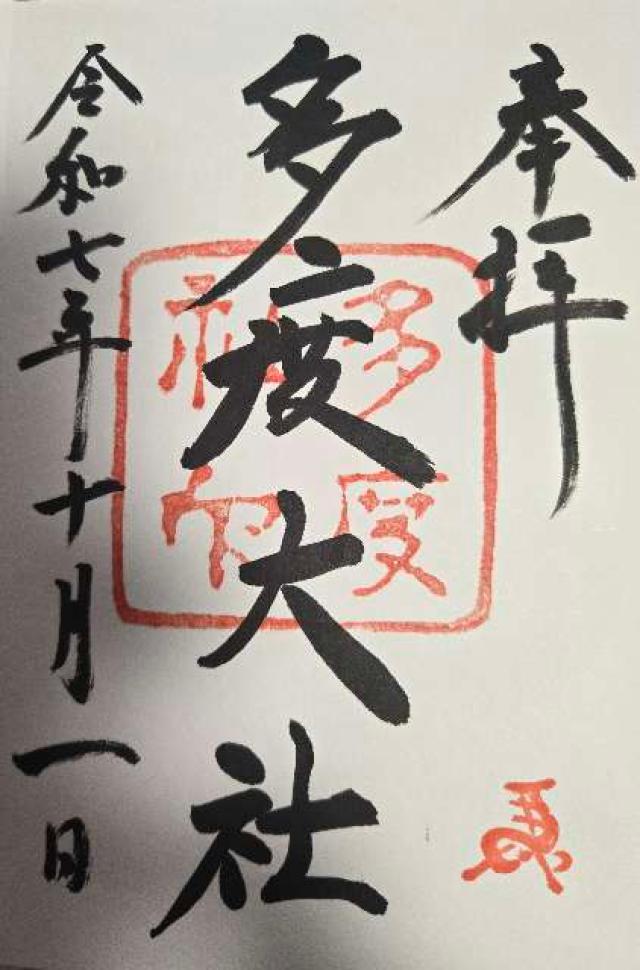 奉拝
多度大社
令和七年十月一日
多度
社印